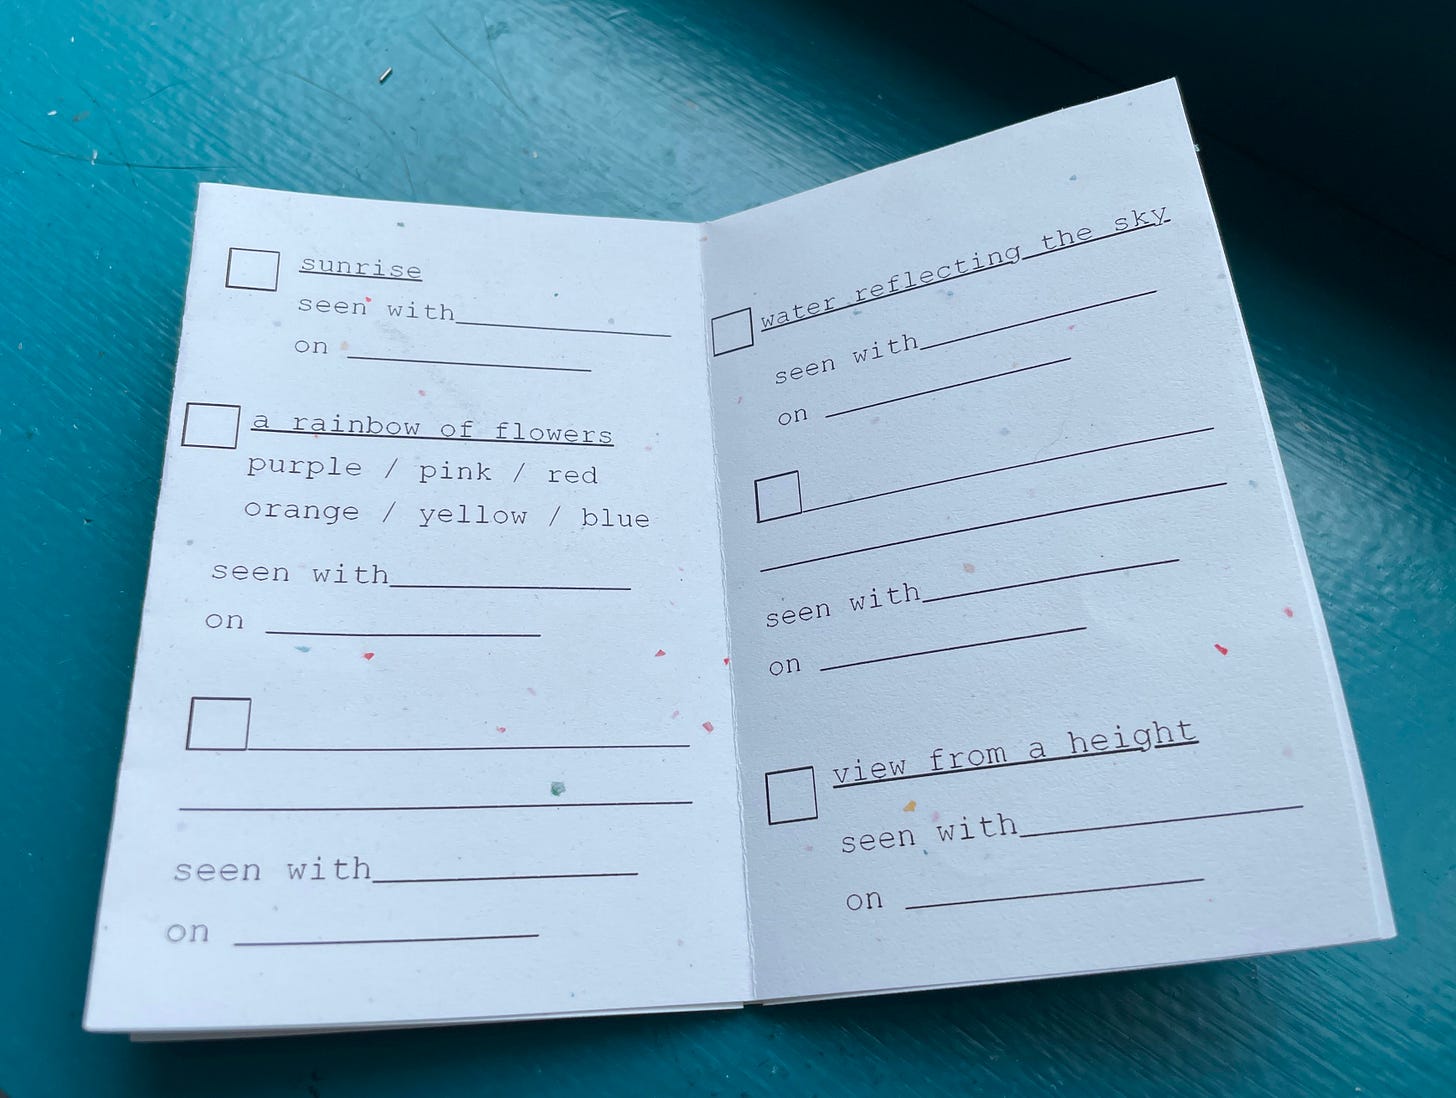 sunrise
seen with
on
a rainbow of flowers
purple / pink / red
orange / yellow / blue
seen with
on
seen with
on
water reflecting the sky
seen with
on
seen with
on
view from a height
seen with
on